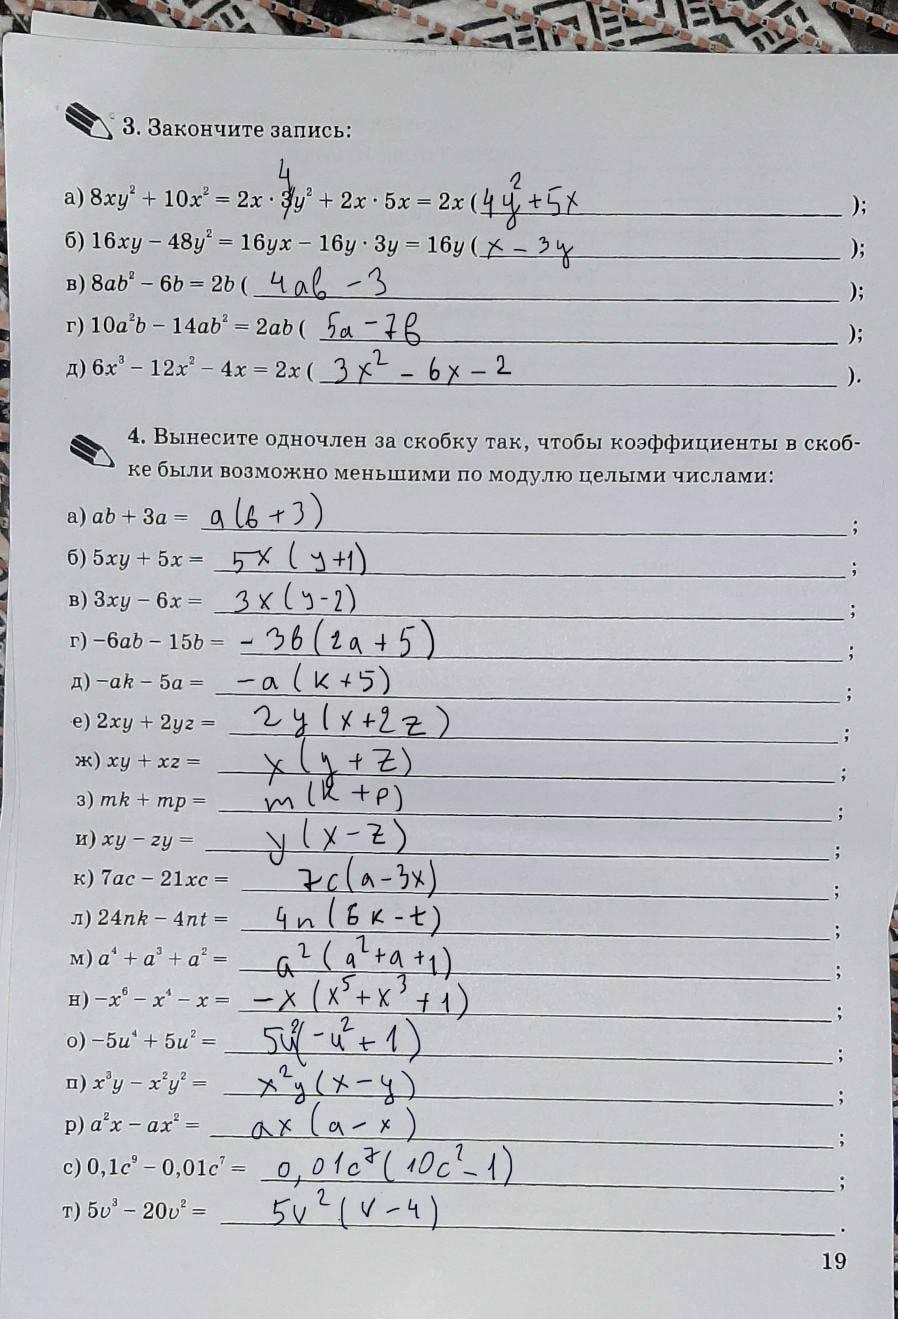 3. Закончите запись:
4
а) 8xy² + 10x² = 2x · 3y² + 2x · 5x = 2x (4y²+5x);
б) 16xy − 48y² = 16yx − 16y · 3y = 16y (x − 3y);
в) 8ab² − 6b = 2b (4ab − 3);
г) 10a²b − 14ab² = 2ab (5a − 7b);
д) 6x³ − 12x² − 4x = 2x (3x² − 6x − 2).
4. Вынесите одночлен за скобку так, чтобы коэффициенты в скоб-
ке были возможно меньшими по модулю целыми числами:
а) ab + 3a = a(b+3);
б) 5xy + 5x = 5x(y+1);
в) 3xy − 6x = 3x(y-2);
г) −6ab − 15b = -3b(2a+5);
д) −ak − 5a = -a(k+5);
е) 2xy + 2yz = 2y(x+2z);
ж) xy + xz = x(y+z);
з) mk + mp = m(k+p);
и) xy − zy = y(x-z);
к) 7ac − 21xc = 7c(a-3x);
л) 24nk − 4nt = 4n(6k-t);
м) a⁴ + a³ + a² = a²(a²+a+1);
н) −x⁶ − x⁴ − x = -x(x⁵+x³+1);
о) −5u⁴ + 5u² = 5u²(-u²+1);
п) x³y − x²y² = x²y(x-y);
р) a²x − ax² = ax(a-x);
с) 0,1c⁹ − 0,01c⁷ = 0,01c⁷(10c²-1);
т) 5v³ − 20v² = 5v²(v-4).
19